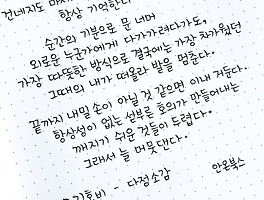 건네지도 마시
항상 기억한다
순간의 기분으로 문 너머
외로운 누군가에게 다가가려다가도,
가장 따뜻한 방식으로 결국에는 가장 차가웠던
그때의 내가 떠올라 발을 멈춘다.
끝까지 내밀 손이 아닐 것 같으면 이내 거둔다.
항상성이 없는 섣부른 호의가 만들어내는
깨지기 쉬운 것들이 두렵다.
그래서 늘 머뭇댄다.
김혼비 - 다정소감
안온북스